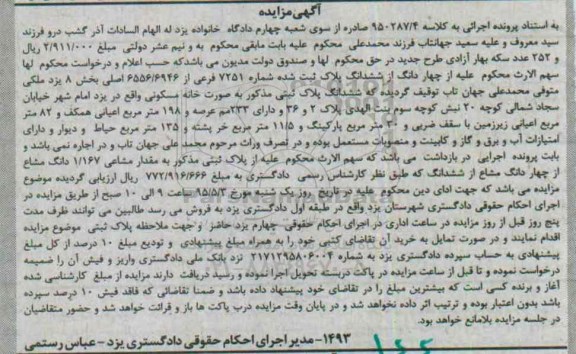 آگهی مزایده
به استناد پرونده اجرائی به کلاسه ۹۵۰۲۸۷/۴ صادره از سوی شعبه چهارم دادگاه خانواده یزد له الهام السادات آذر گشب درو فرزند
سید معروف و علیه سعید جهانتاب فرزند محمدعلی محکوم علیه بابت مابقی محکوم به و نیم عشر دولتی مبلغ ۲/۹۱۱/۰۰۰ ریال
و ۲۵۲ عدد سکه بهار آزادی طرح جدید در حق محکوم لها و صندوق دولت مدیون می باشدکه حسب اعلام و درخواست محکوم لها
سهم الارث محکوم علیه از چهار دانگ از ششدانگ پلاک ثبت شده شماره ۷۲۵۱ فرعی از ۶۵۵۶/۶۹۴۶ اصلی بخش ۸ یزد ملکی
متوفی محمدعلی جهان تاب توقیف گردیده که ششدانگ پلاک ثبتی مذکور به صورت خانه مسکونی واقع در یزد امام شهر خیابان
سجاد شمالی کوچه ۲۰ نبش کوچه سوم بنت الهدی پلاک ۲ و ۳۶ و دارای ۲۳۳مم عرصه و ۱۹۸ متر مربع اعیانی همکف و ۸۲ متر
مربع اعیانی زیرزمین با سقف ضربی و متر مربع پارکینگ و ۱۱/۵ متر مربع خر پشته و ۱۳۵ متر مربع حیاط و دیوار و دارای
امتیازات آب و برق و گاز و کابینت و منصوبات مستعمل بوده و در تصرف وراث مرحوم محمد علی جهان تاب و در اجاره نمی باشد و
بابت پرونده اجرایی در بازداشت می باشد که سهم الارث محکوم علیه از پلاک ثبتی مذکور به مقدار مشاعی ۱/۱۶۷ دانگ مشاع
از چهار دانگ مشاع از ششدانگ که طبق نظر کارشناس رسمی دادگستری به مبلغ ۷۷۲/۹۱۶/۶۶۶ ریال ارزیابی گردیده موضوع
مزایده می باشد که جهت ادای دین محکوم علیه در تاریخ روز یک شنبه مورخ ۹۵/۵/۳ ساعت ۹ الی ۱۰ صبح از طریق مزایده در
اجرای احکام حقوقی دادگستری شهرستان یزد واقع در طبقه اول دادگستری یزد به فروش می رسد طالبین می توانند ظرف مدت
پنج روز قبل از روز مزایده در ساعت اداری در اجرای احکام حقوقی چهارم یزد حاضر و جهت ملاحظه پلاک ثبتی موضوع مزایده
اقدام نمایند و در صورت تمایل به خرید آن تقاضای کتبی خود را به همراه مبلغ پیشنهادی و تودیع مبلغ ۱۰ درصد از کل مبلغ
پیشنهادی به حساب سپرده دادگستری یزد به شماره ۲۱۷۱۲۹۵۸۰۶۰۰۴ نزد بانک ملی دادگستری واریز و فیش آن را ضمیمه
درخواست نموده و تا قبل از ساعت مزایده در پاکت دربسته تحویل اجرا نموده و رسید دریافت دارند مزایده از مبلغ کارشناسی شده
آغاز و برنده کسی است که بیشترین مبلغ را در تقاضای خود پیشنهاد داده باشد و ضمنا تقاضائی که فاقد فیش ۱۰ درصد سپرده
باشد بدون اعتبار بوده و ترتیب اثر داده نخواهد شد و در پایان وقت مزایده درب پاکت ها باز و قرائت خواهد شد و حضور متقاضیان
در جلسه مزایده بلامانع خواهد بود.
۱۴۹۳- مدیر اجرای احکام حقوقی دادگستری یزد - عباس رستمی